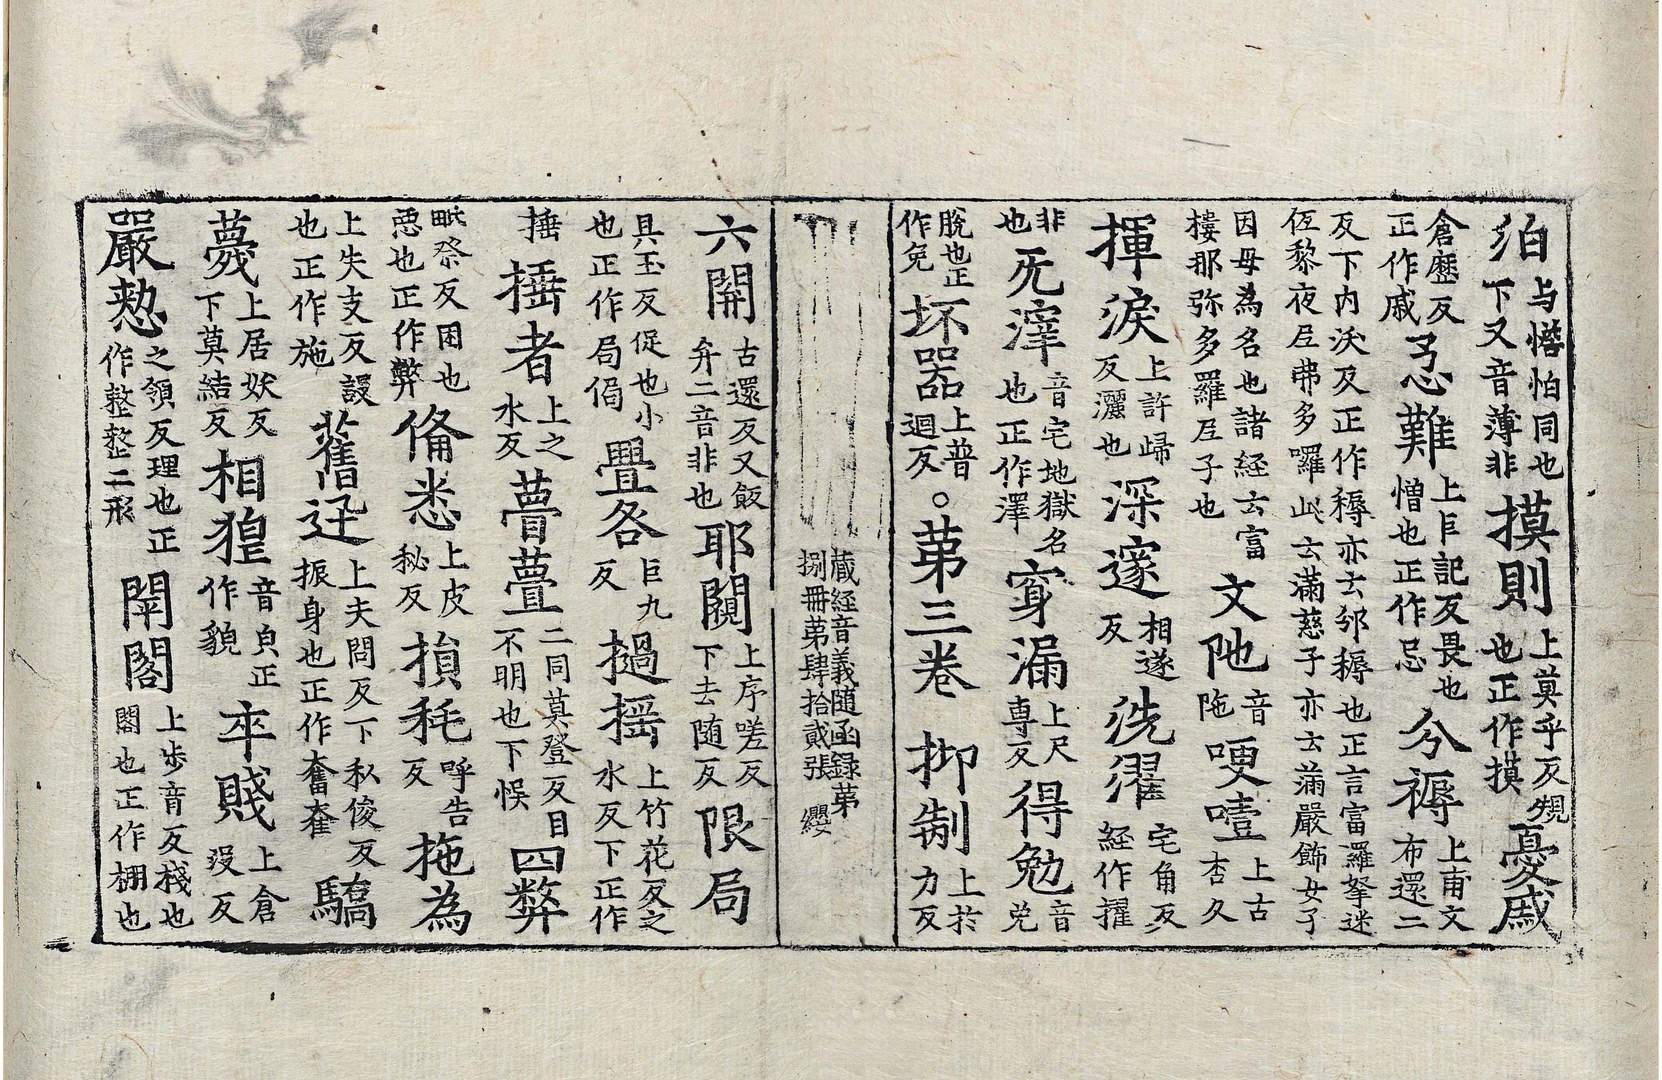 泊与憯怕同也下又音薄非摸則上莫乎反規也正作摸憂戚
倉歷反正作戚㤅難上巨記反畏也憎也正作忌分褥上甫文布還二
反下内沃反正作䅶亦去邠䅶也正言富羅拏迷低黎夜𡰱弗多囉此云滿慈子亦云滿嚴飾女子
因母為名也諸経云富樓那弥多羅𡰱子也文阤音陁哽噎上古杏久
揮淚上許歸反灑也深邃相遂反洗濯宅角反経作擢
非也旡滓音宅地獄名也正作澤穿漏上尺専反得勉音兊
脫也正作免坏器上普迴反。第三卷抑制上於力反
藏経音義随函録第捌冊第肆拾貳張 纓
六開古還反又飯弁二音非也耶闚上序嗟反下去随反限局
具玉反促也小也正作局侷疊各巨九反撾捶上竹花反之水反下正作
捶捶者上之水反瞢䒐二同莫登反目不明也下悮四弊
毗祭反困也恶也正作弊俻悉上皮秘反損秏呼告反拖為
上失支反設也正作施舊迅上夫問反下私俊反振身也正作奮奞驕
薎上居妖反下莫結反相狟音皃正作貌卒賤上倉沒反
嚴愸之領反理也正作整整二形閛閣上步音反棧也閣也正作棚也